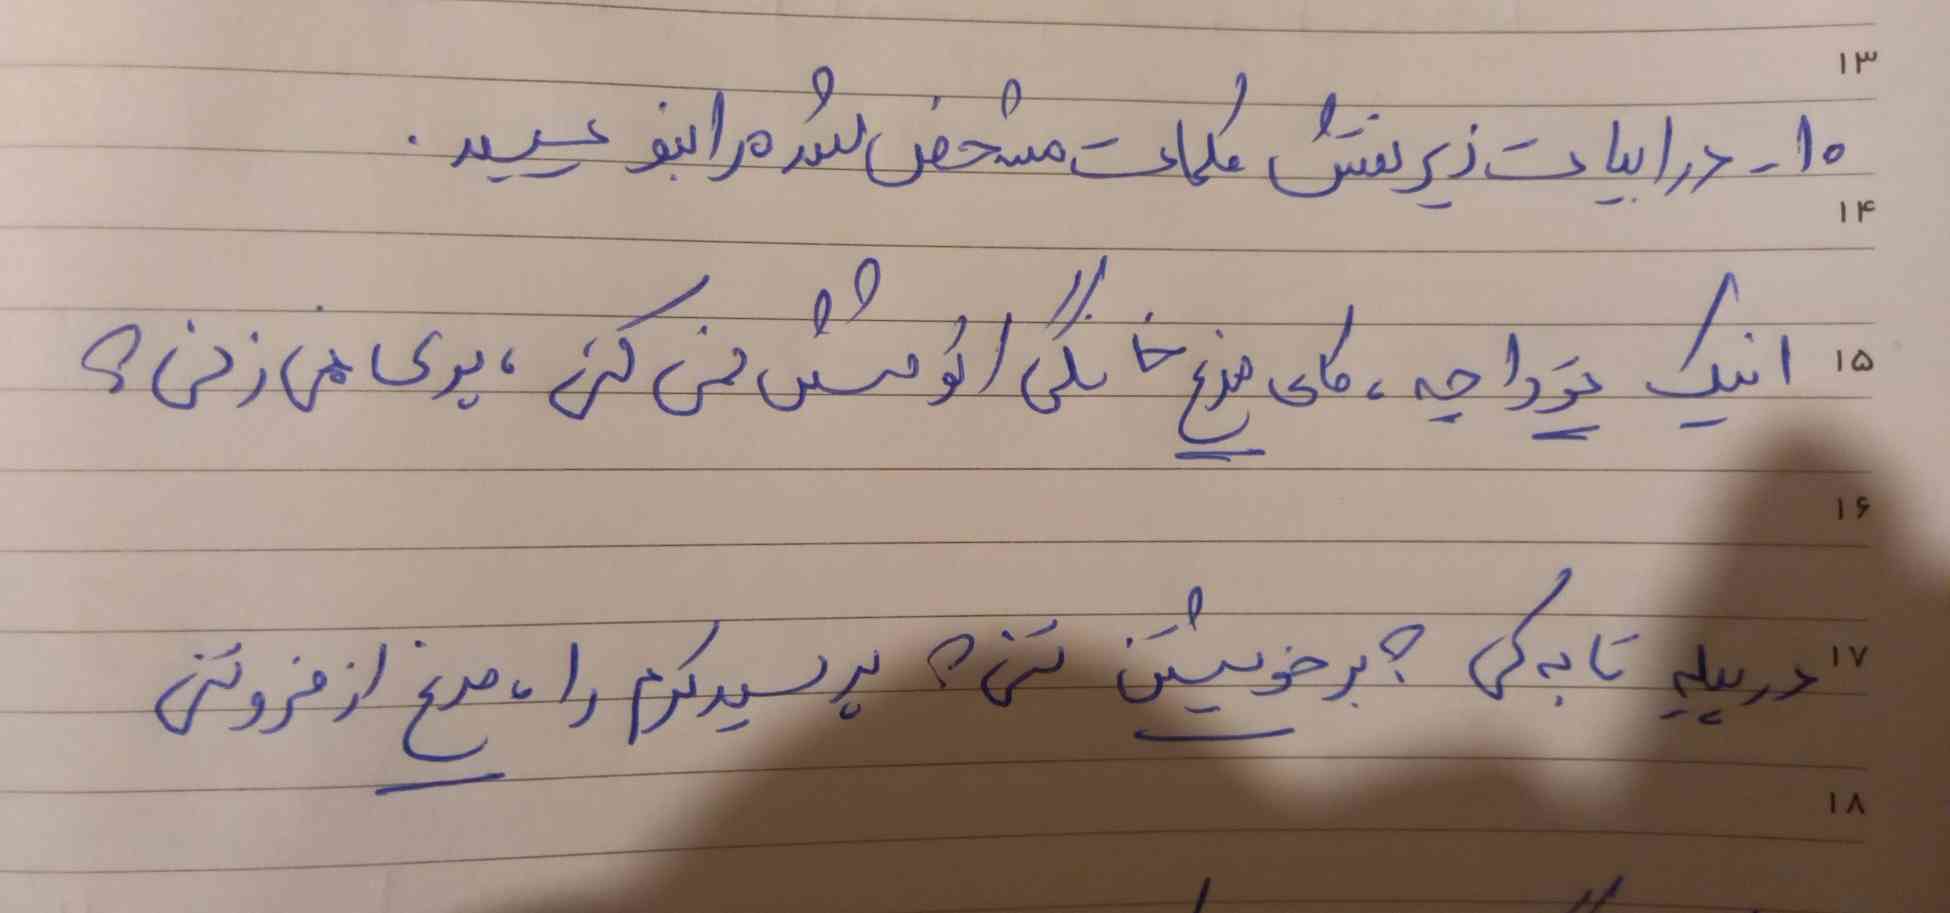 ۱۳
۱۰- در ابیات زیر نقش کلمات مشخص شده را بنویسید.
۱۴
۱۵ اینک تو را چه، کای مرغ خانگی! کوشش نمی کنی، پری نمی زنی؟
۱۶
۱۷ در پیله تا به کی؟ بر خویشتن تنی؟ پرسید کرم را، مرغ از فروتنی
۱۸